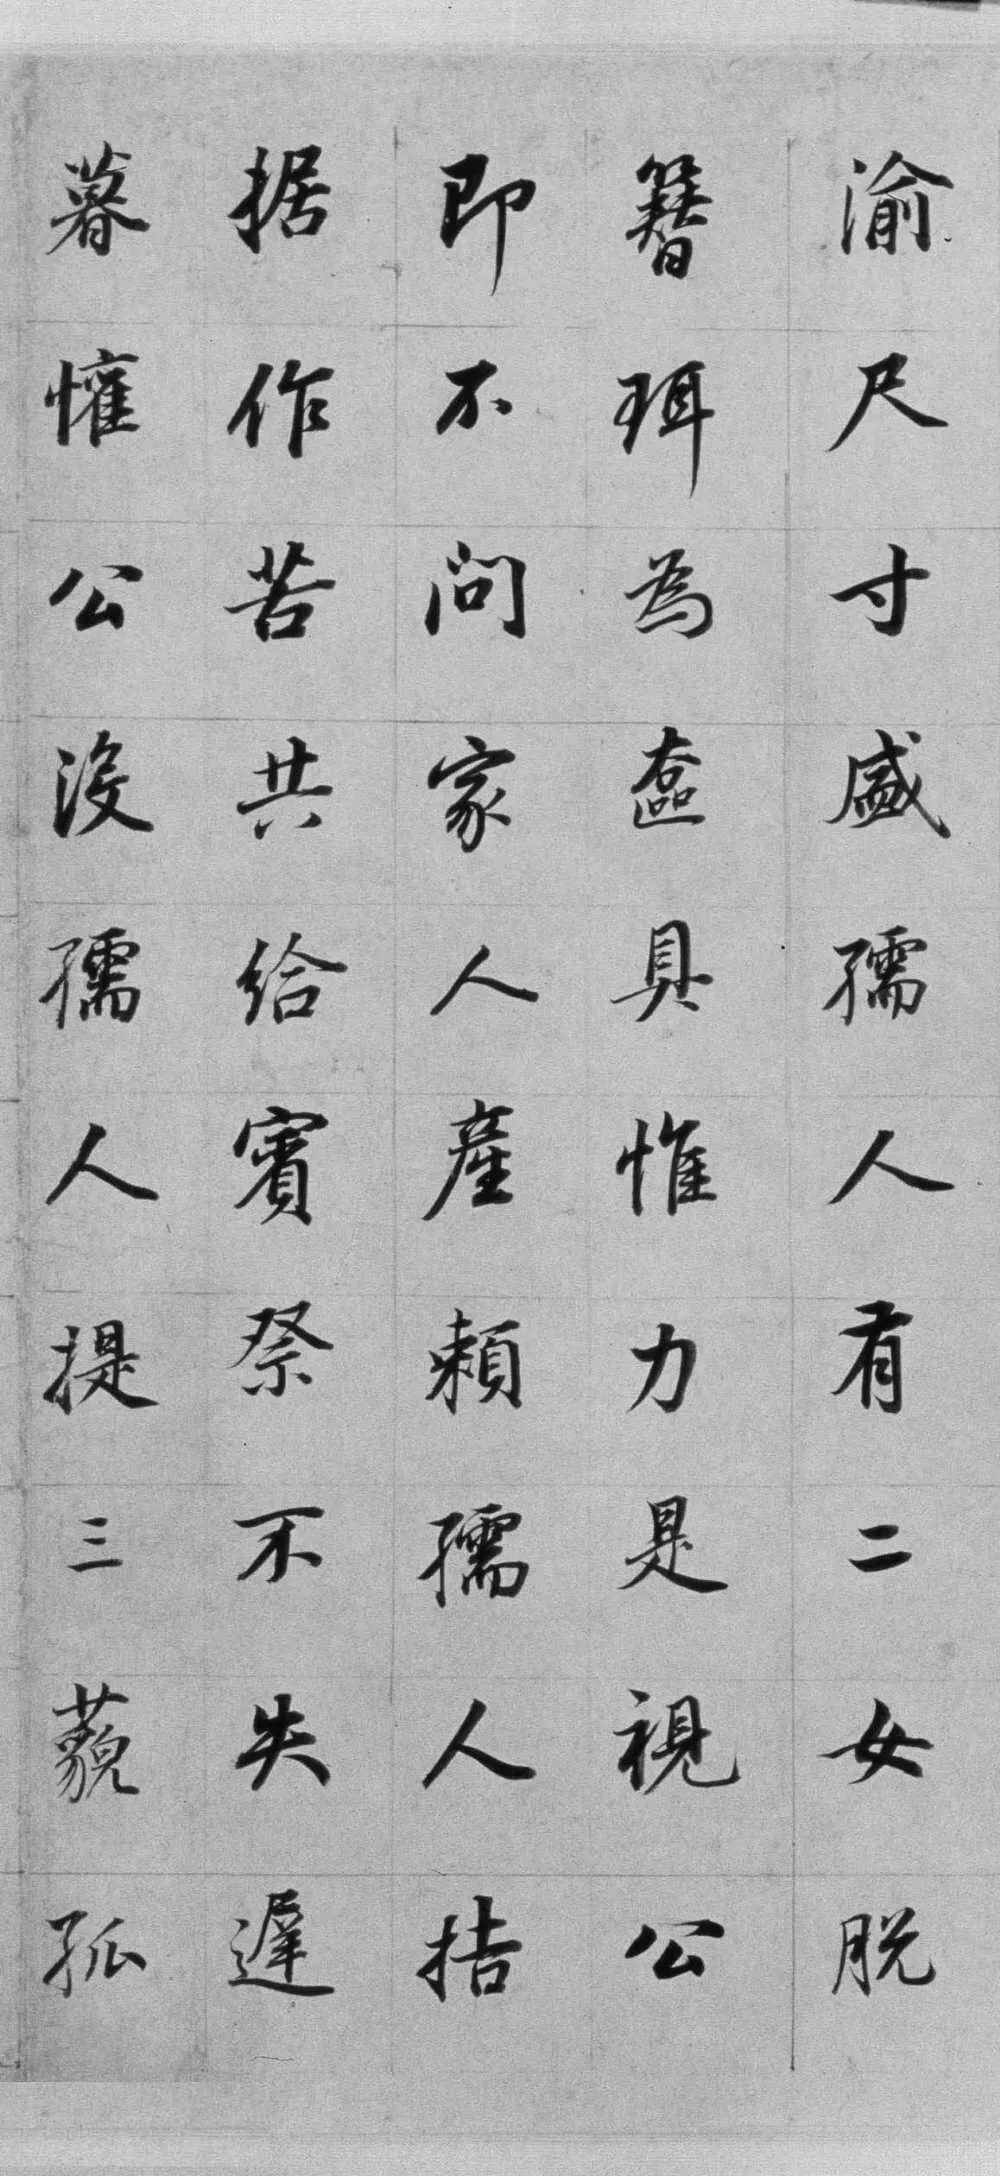 渝尺寸盛孺人有二女脱
簪珥為奩具惟力是視公
即不問家人産賴孺人拮
据作苦共給賓祭不失遲
暮懽公没孺人提三藐孤